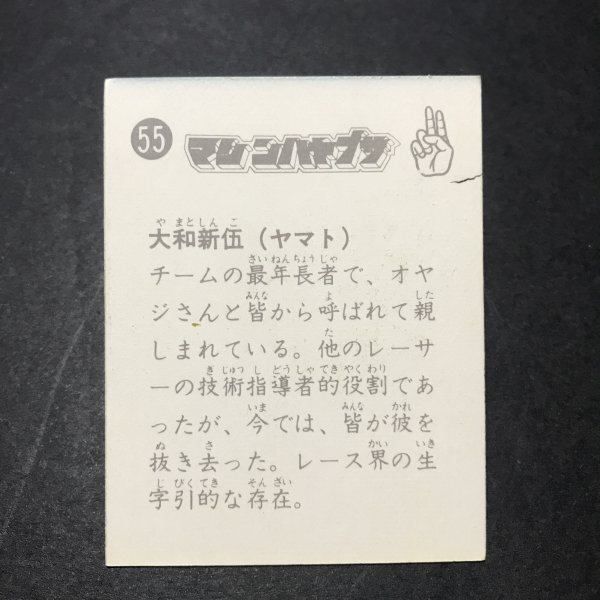 55
マシンハヤブサ
大和新伍（ヤマト）
チームの最年長者で、オヤ
ジさんと皆から呼ばれて親
しまれている。他のレーサ
ーの技術指導者的役割であ
ったが、今では、皆が彼を
抜き去った。レース界の生
字引的な存在。